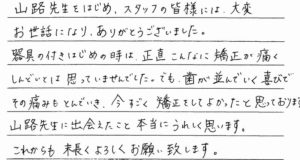 山路先生をはじめ、スタッフの皆様には、大変
お世話になり、ありがとうございました。
器具の付きはじめの時は、正直こんなに矯正が痛く
しんどいとは思っていませんでした。でも、歯が並んでいく喜びで
その痛みもとんでいき、今すごく矯正をしてよかったと思っております
山路先生に出会えたこと本当にうれしく思います。
これからも末長くよろしくお願い致します。